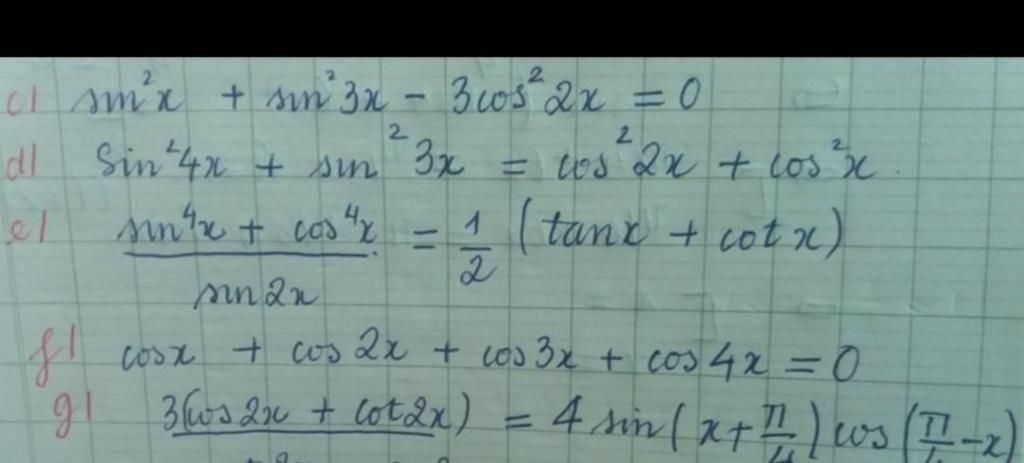 c) sin²x + sin²3x - 3cos²2x = 0
d) Sin²4x + sin²3x = cos²2x + cos²x.
e) sin⁴x + cos⁴x / sin2x = 1/2 (tanx + cotx)
f) cosx + cos2x + cos3x + cos4x = 0
g) 3(cos2x + cot2x) = 4 sin(x+π/4) cos(π/4-x)